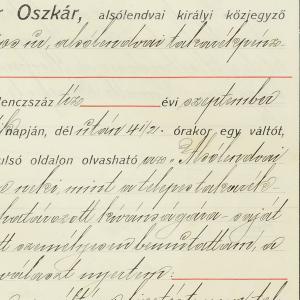 r Oszkár, alsólendvai királyi közjegyző
alsólendvai takarékpénz-
lenczszáz tíz évi szeptember
napján, dél után 4 1/2 órakor egy váltót,
ulsó oldalon olvasható "Alsólendvai
neki, mint a telepes takarék-
határozott kivánságára saját
tt személyesen bemutattam, a
választ nyertem: